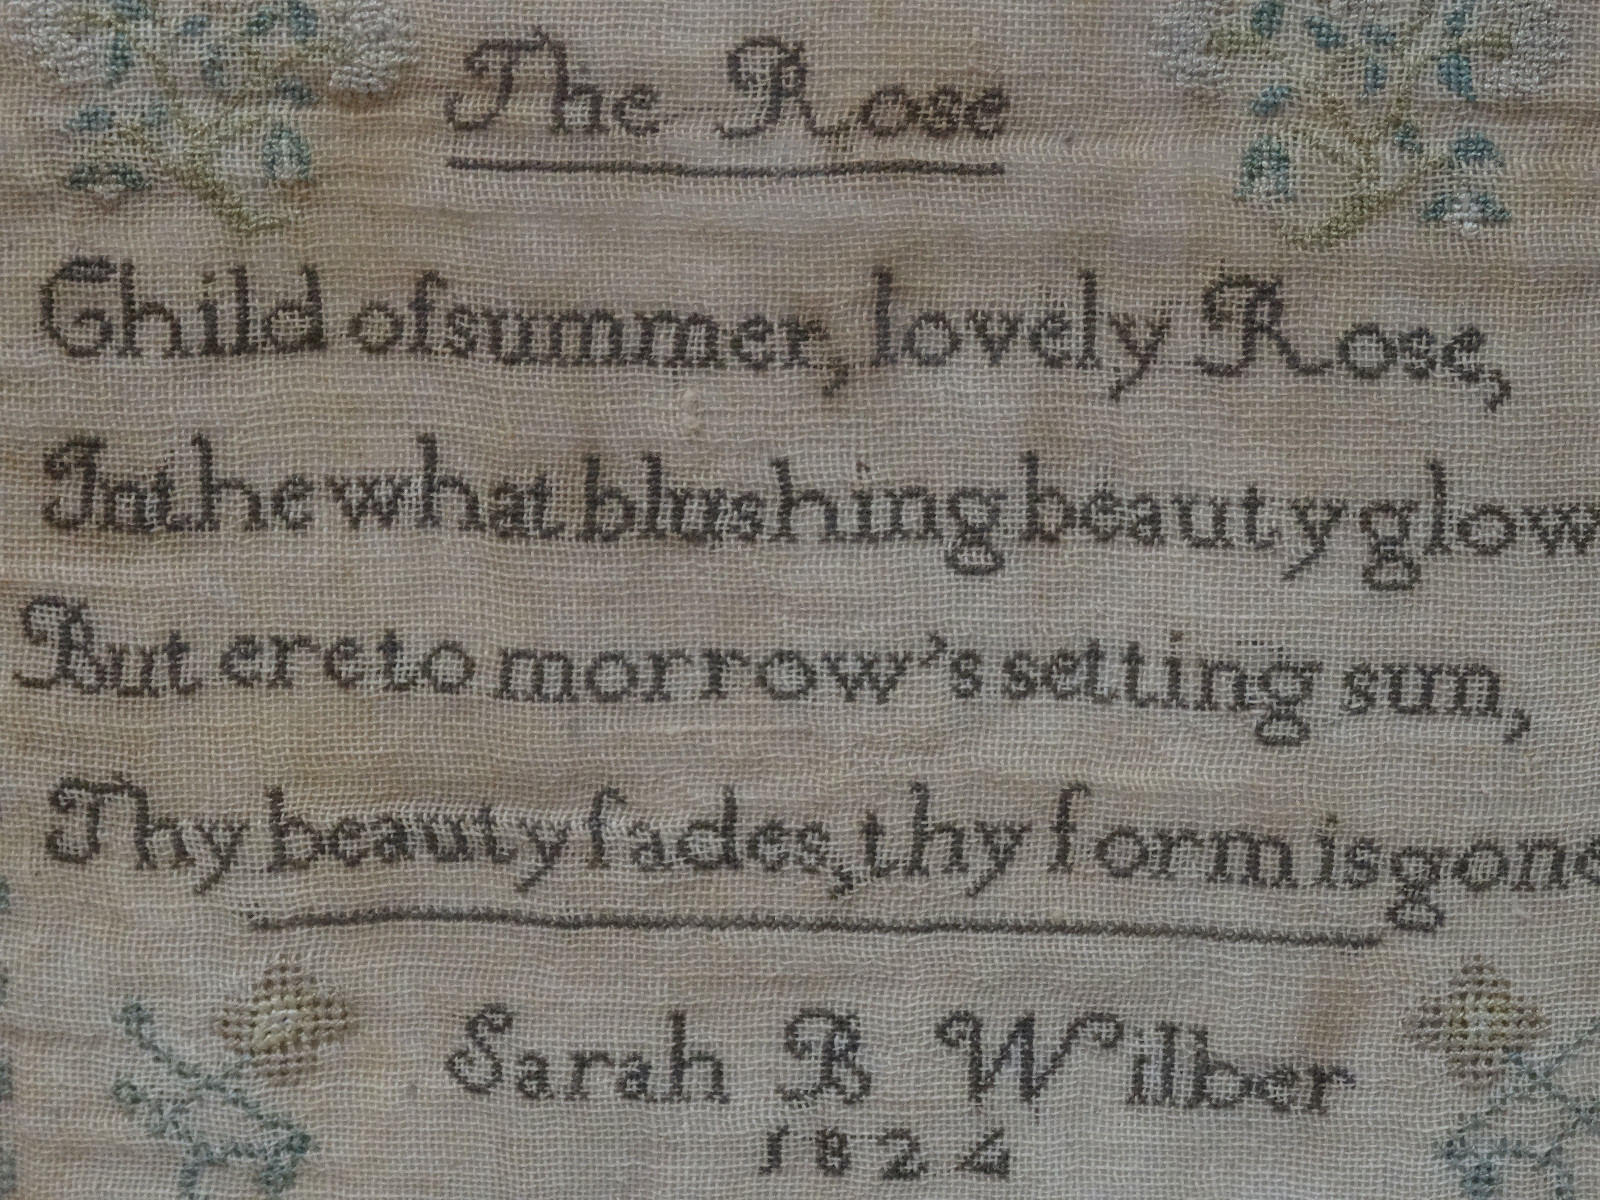 The Rose
Child of summer, lovely Rose,
In the what blushing beauty glow
But ere to morrow's setting sun,
Thy beauty fades, thy form is gone
Sarah B Wilber
1824